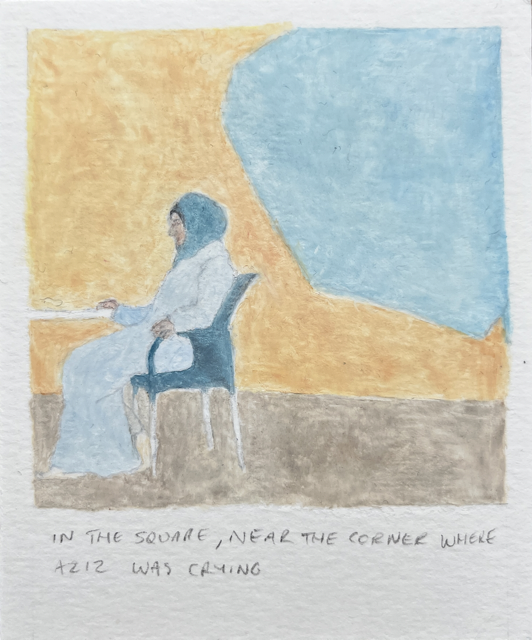 IN THE SQUARE, NEAR THE CORNER WHERE
AZIZ WAS CRYING